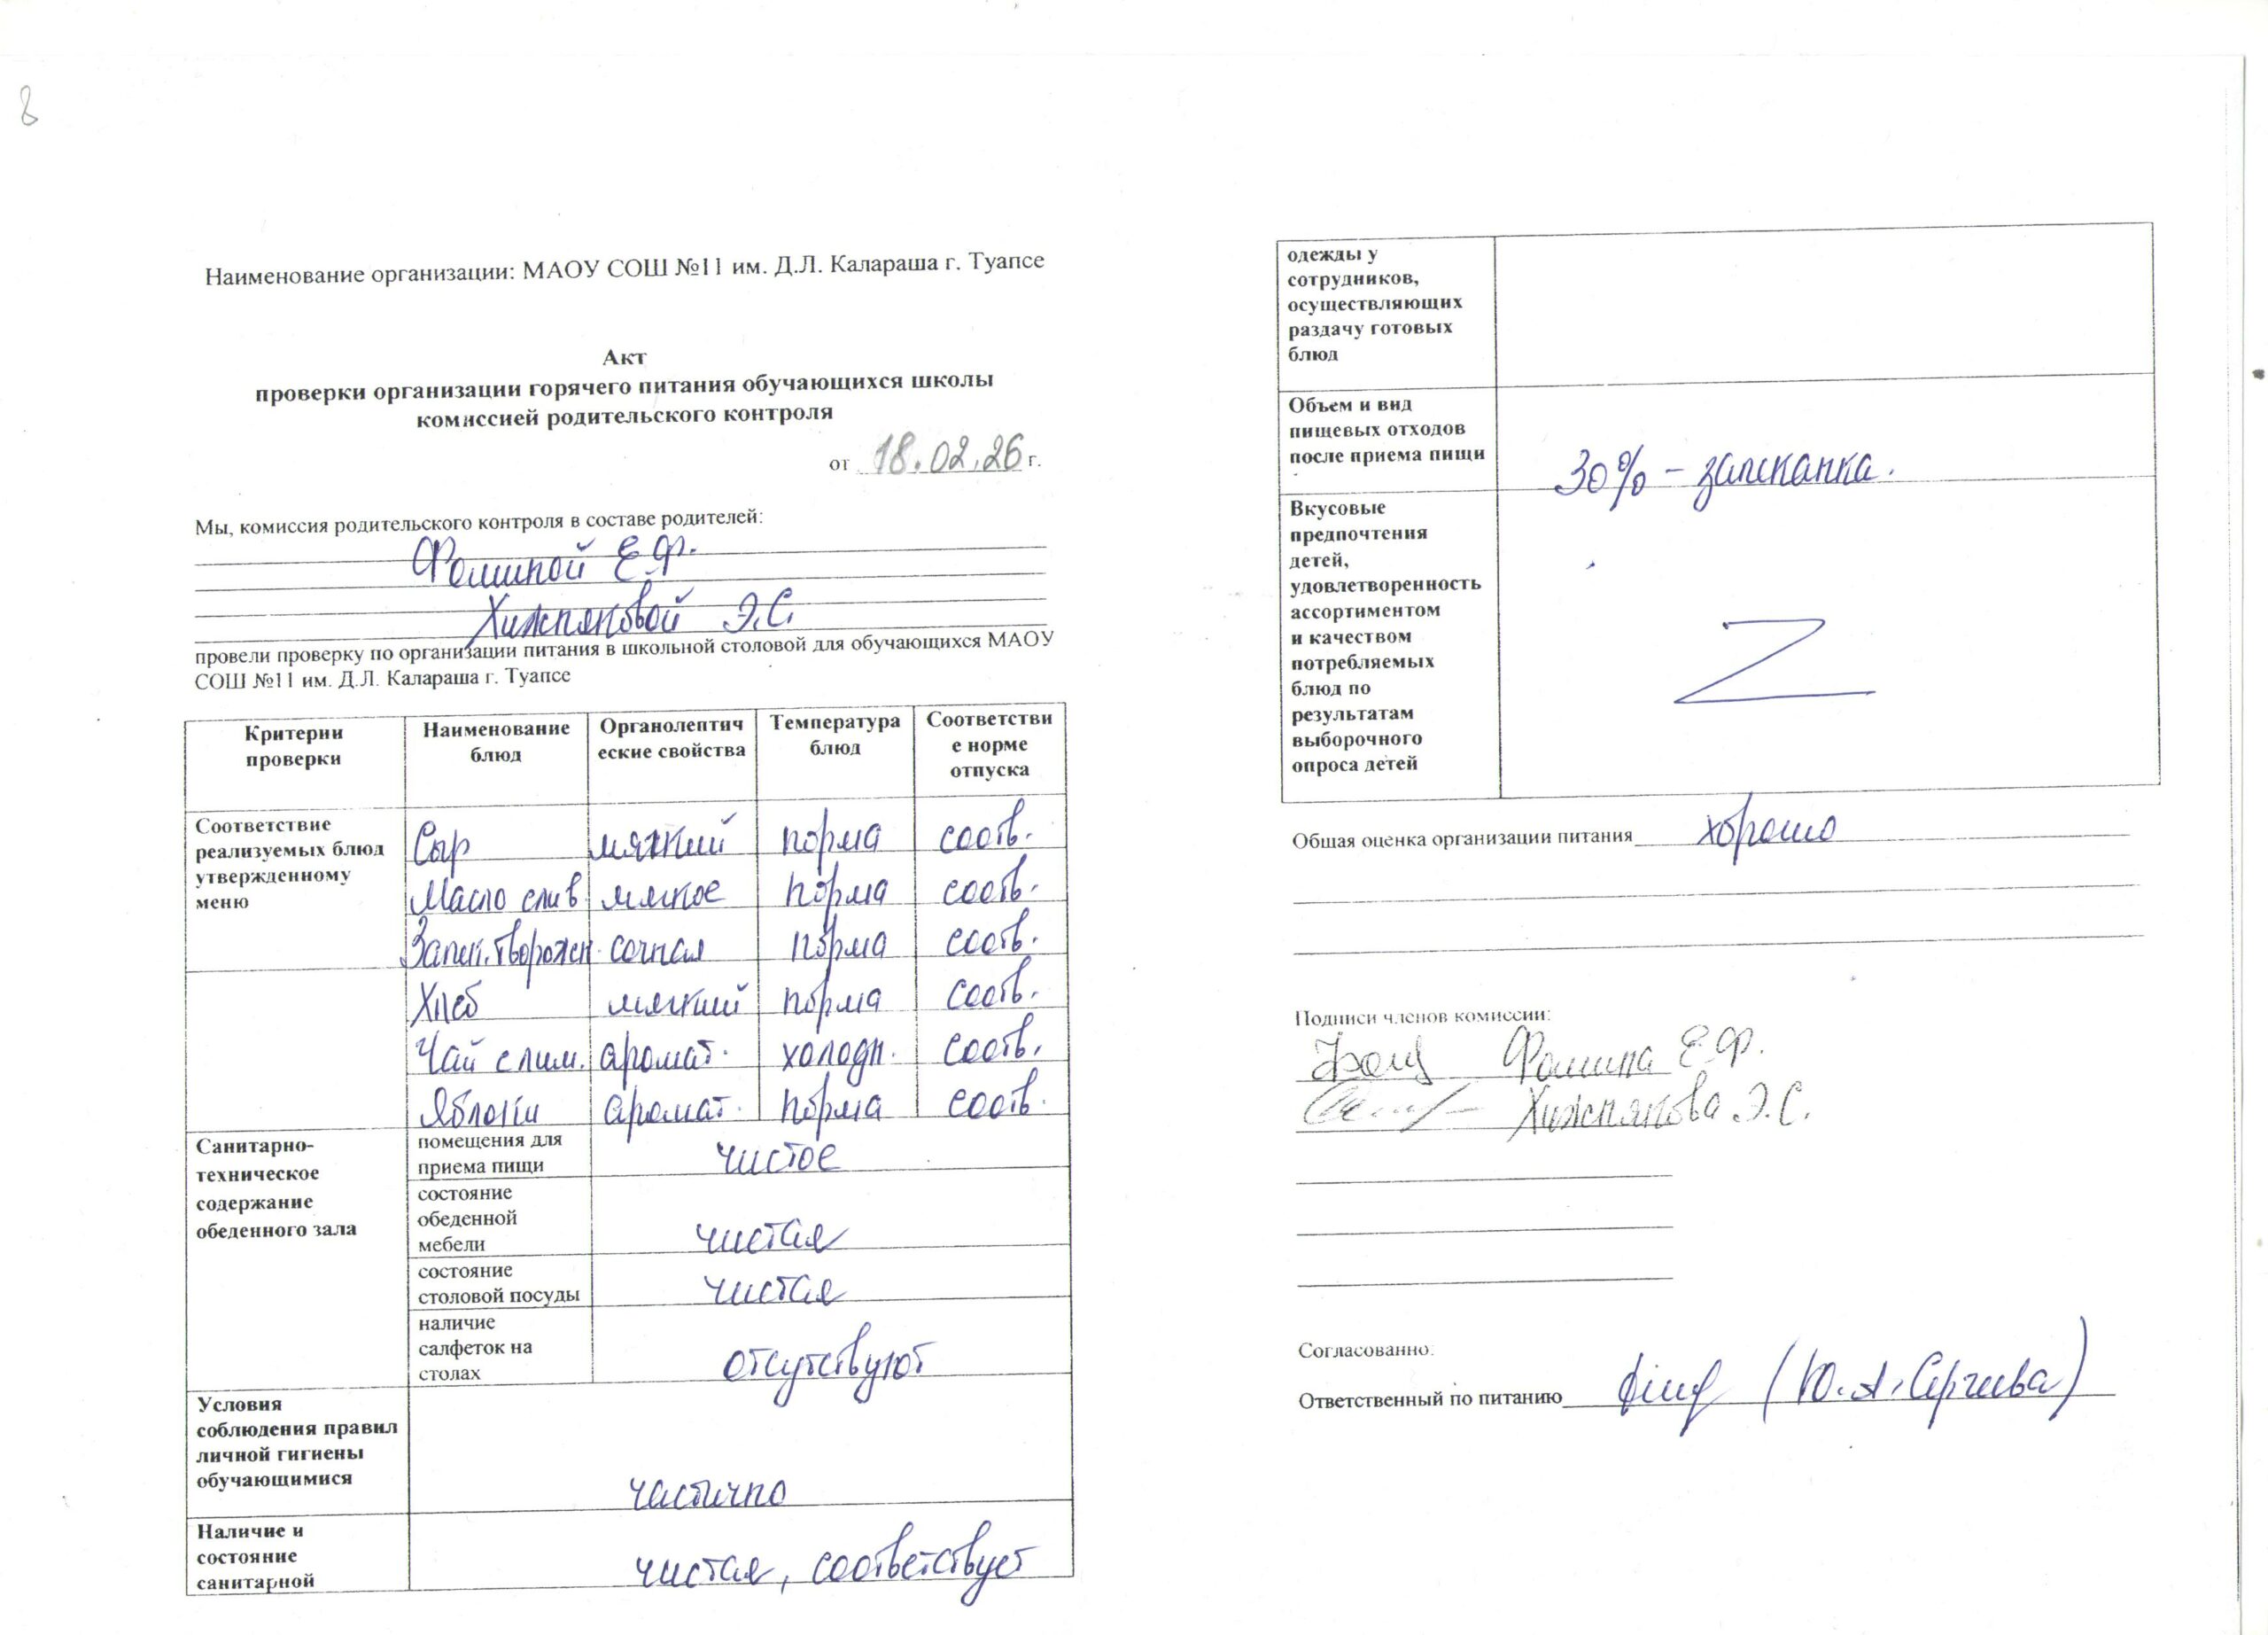 8
Наименование организации: МАОУ СОШ №11 им. Д.Л. Калараша г. Туапсе
Акт
проверки организации горячего питания обучающихся школы
комиссией родительского контроля
от 18.02.26 г.
Мы, комиссия родительского контроля в составе родителей:
Фоминой Е.Ф.
Хижняковой Э.С.
провели проверку по организации питания в школьной столовой для обучающихся МАОУ
СОШ №11 им. Д.Л. Калараша г. Туапсе
Критерии проверки Наименование блюд Органолептические свойства Температура блюд Соответствие норме отпуска
Соответствие
реализуемых блюд
утвержденному
меню
Сыр мягкий норма соотв.
Масло слив. мягкое норма соотв.
Запек. творожн. сочная норма соотв.
Хлеб мягкий норма соотв.
Чай с лим. аромат. холодн. соотв.
Яблоки аромат. норма соотв.
Санитарно-
техническое
содержание
обеденного зала
помещения для
приема пищи чистое
состояние
обеденной
мебели чистая
состояние
столовой посуды чистая
наличие
салфеток на
столах отсутствуют
Условия
соблюдения правил
личной гигиены
обучающимися частично
Наличие и
состояние
санитарной чистая, соответствует
одежды у
сотрудников,
осуществляющих
раздачу готовых
блюд
Объем и вид
пищевых отходов
после приема пищи 30% – запеканка.
Вкусовые
предпочтения
детей,
удовлетворенность
ассортиментом
и качеством
потребляемых
блюд по
результатам
выборочного
опроса детей
Z
Общая оценка организации питания хорошо
Подписи членов комиссии:
Фомина Е.Ф.
Хижнякова Э.С.
Согласованно:
Ответственный по питанию (Ю.А. Сергеева)